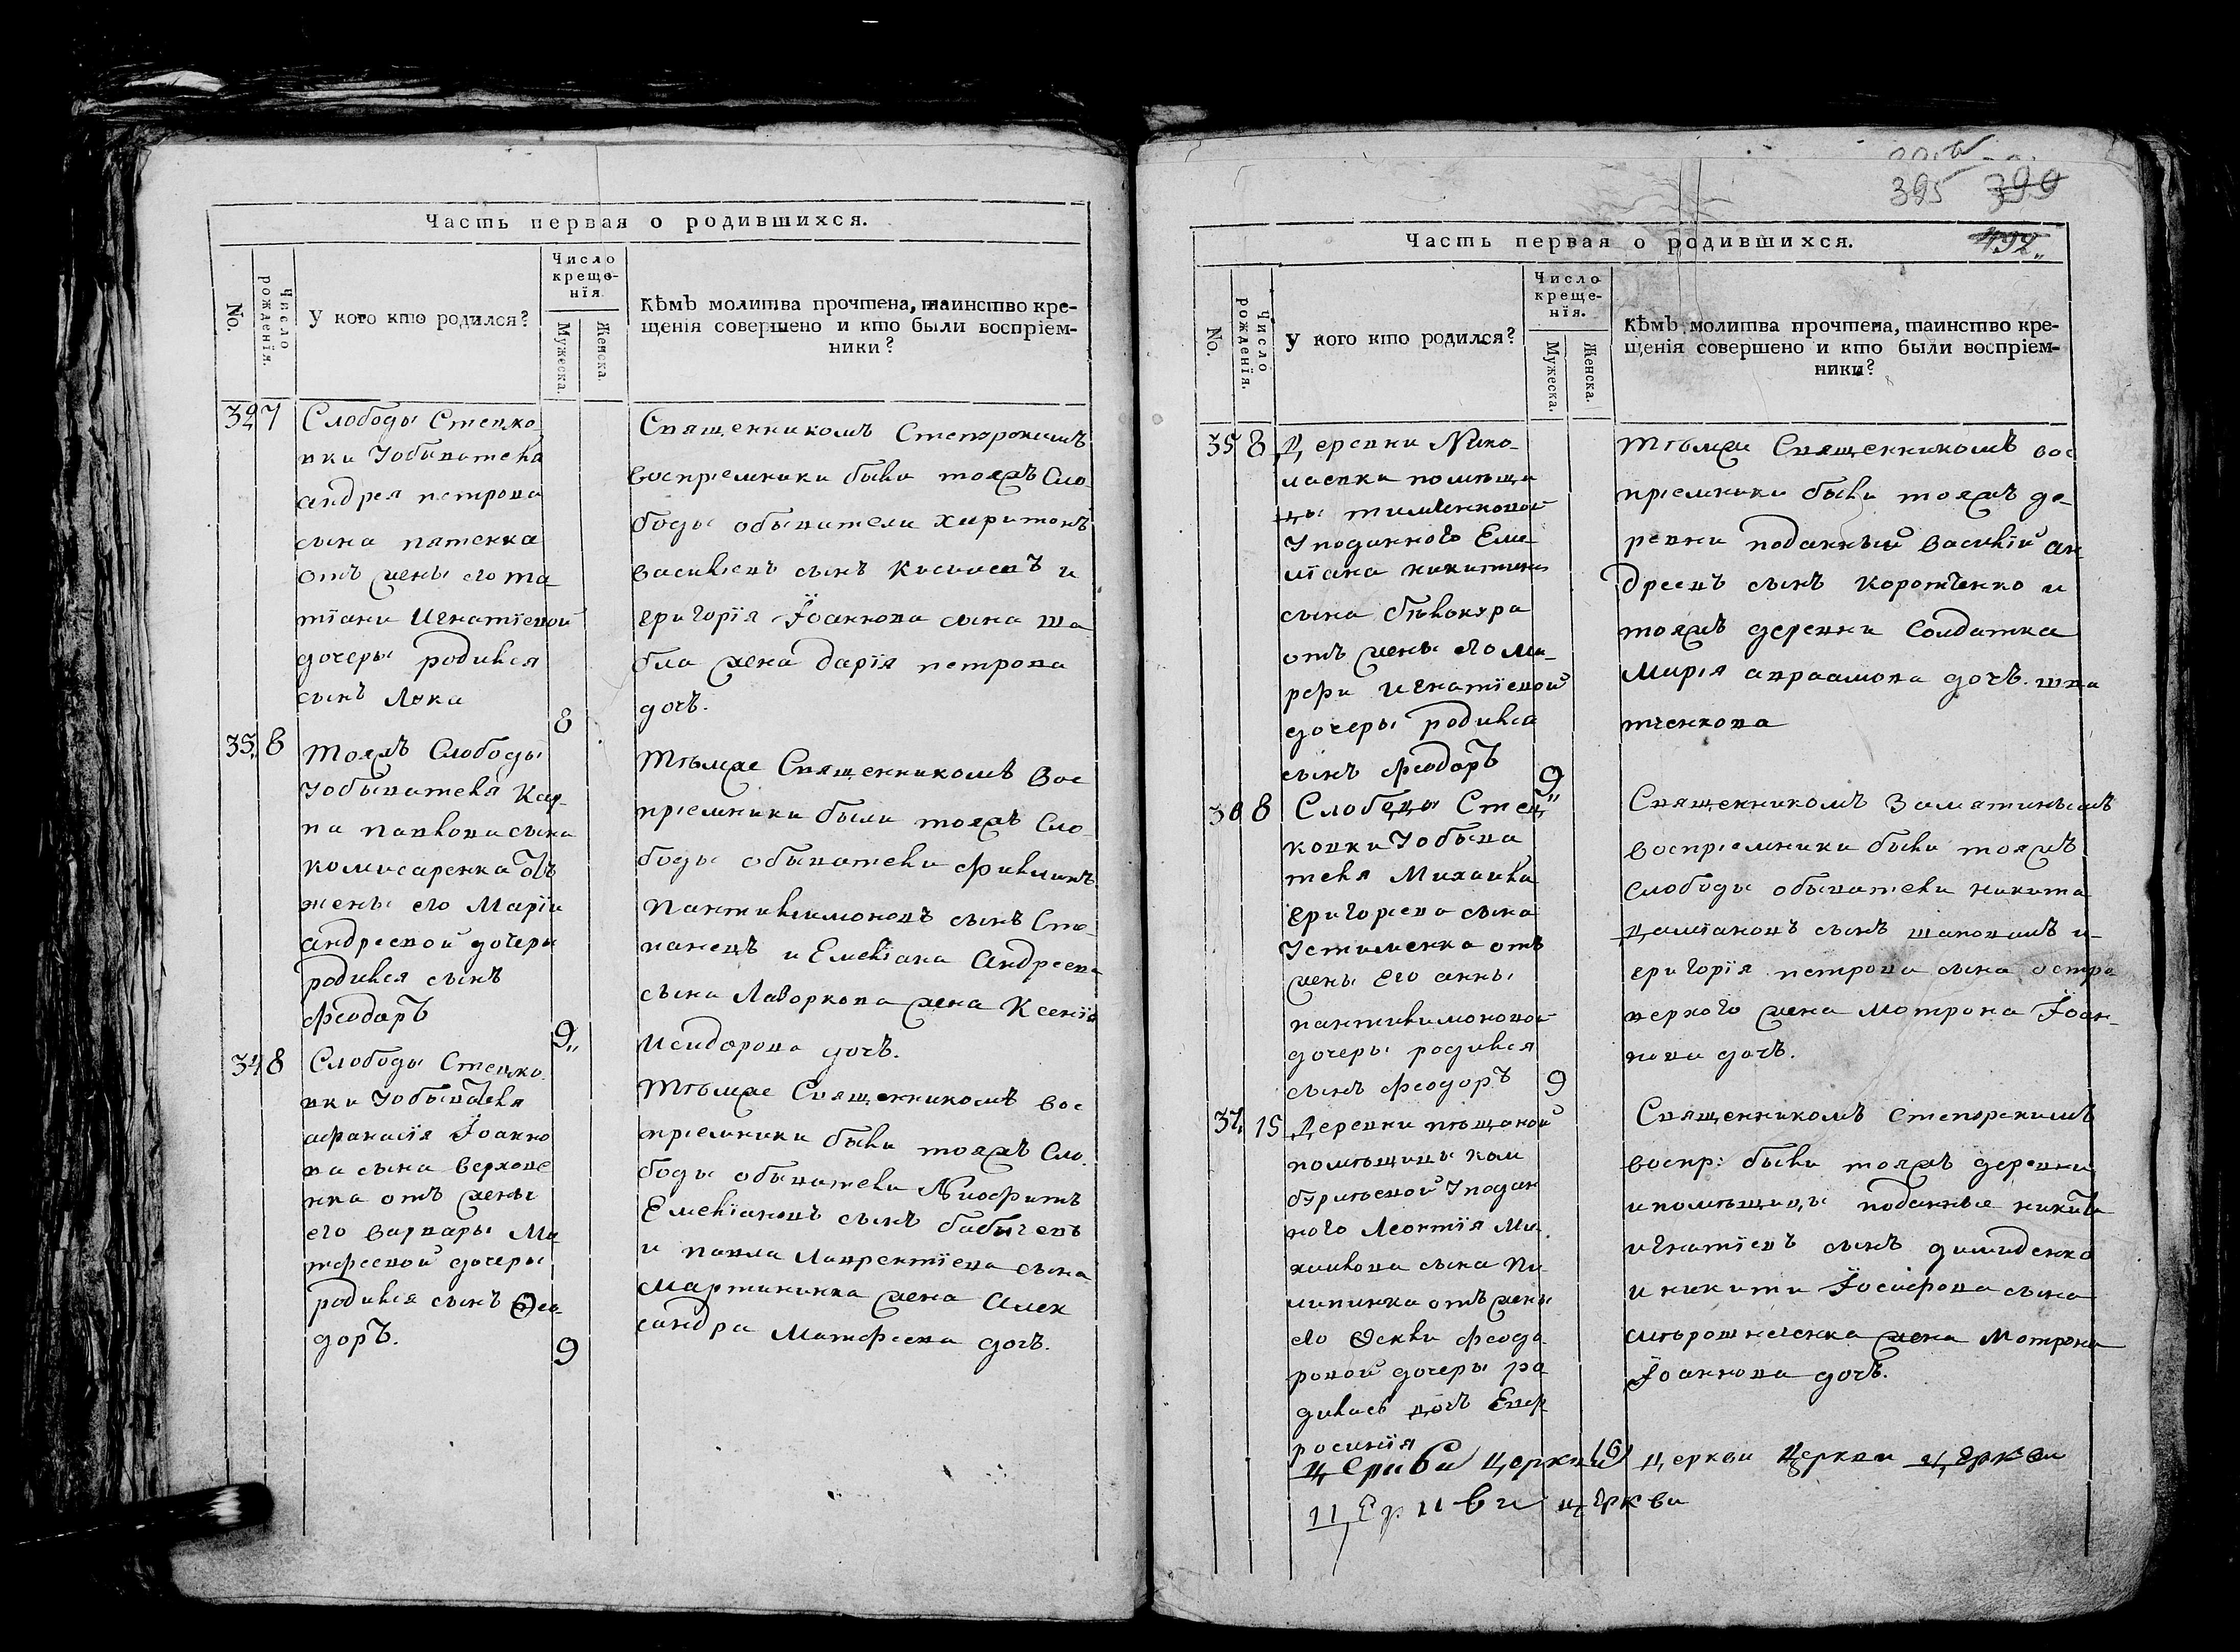 Часть первая о родившихся.
No.
Число рожденїя.
У кого кто родился?
Число
креще-
нїя
Мужеска.
Женска.
Кѣмъ молитва прочтена, таинство кре-
щенїя совершено и кто были воспрїем-
ники?
32 7 Слободы Степко
вки Уобывателя
андрея петрова
сына пятенка
отъ жены его та
тїаны Игнатїевой
дочеры родился
сынъ Лука
8
Священникомъ
воспрїемники были тояжъ Сло
боды обыватели харитонъ
василіевъ сынъ и
григорїя Їоаннова сына ша
бла жена дарїя петрова
дочъ.
33 8 тояжъ Слободы
Уобывателя Кар
па павлова сына
комисаренка отъ
жены его Марїи
андреевой дочери
родился сынъ
феодоръ
9
Тѣмже Священникомъ Вос
прїемники были тояжъ Сло
боды обыватели филипъ
пантилимоновъ сынъ Сте
паневъ и Емелїана Андреева
сына жена Ксенїа
Исидорова дочъ.
34 8 Слободы Степко
вки Уобывателя
афанасїя Їоанно
ва сына верхове
нка отъ жены
его варвары Ма
тфеевой дочеры
родился сынъ Фео
доръ.
9
Тѣмже Священникомъ вос
прїемники были тояжъ Сло
боды обыватели Миофитъ
Емелїановъ сынъ бабичевъ
и павла лаврентїева сына
мартиника жена Алек
сандра Матфеева дочъ.
395 390
192
Часть первая о родившихся.
No.
Число рожденїя.
У кого кто родился?
Число
креще-
нїя.
Мужеска.
Женска.
Кѣмъ молитва прочтена, таинство кре-
щенїя совершено и кто были воспрїем-
ники?
35 8 Деревни Нико
лаевки помѣщи
цы тимченковой
Уподанного Еме
лїана никитина
сына бѣлокура
отъ жены его Ма
рфи Игнатїевой
дочеры родился
сынъ феодоръ
9
Тѣмже Священникомъ вос
прїемники были тояжъ де
ревни поданный василїй ан
дреевъ сынъ коротченко и
тояжъ деревни Солдатка
Марїя авраамова дочъ шпа
тченкова
36 8 Слободы Степ
ковки Уобыва
теля Михаила
григорїева сына
Устименка отъ
жены Его анны
пантилимоновой
дочеры родился
сынъ феодоръ
9
Священникомъ Замятинымъ
воспрїемники были тояжъ
слободы обыватели никита
Дамїановъ сынъ шаповалъ и
григорїя петрова сына остро
верхого жена Мотрона Їоан
нова дочъ.
37 15 Деревни пѣщаной
помѣщицы кам
бурлѣевой Уподан
ного Леонтїя Ми
хаилова сына Пи
липинка отъ жены
его Феклы феодо
ровой дочеры ро
дилась дочъ Евф
росинїя
16
Священникомъ
воспр: были тояжъ деревни
ипомѣщицы поданные никита
игнатїевъ сынъ димиденко
и никити Їосифова сына
жена Мотрона
Їоаннова дочъ.
Церкви церкви церкви церкви церкви
церкви церкви